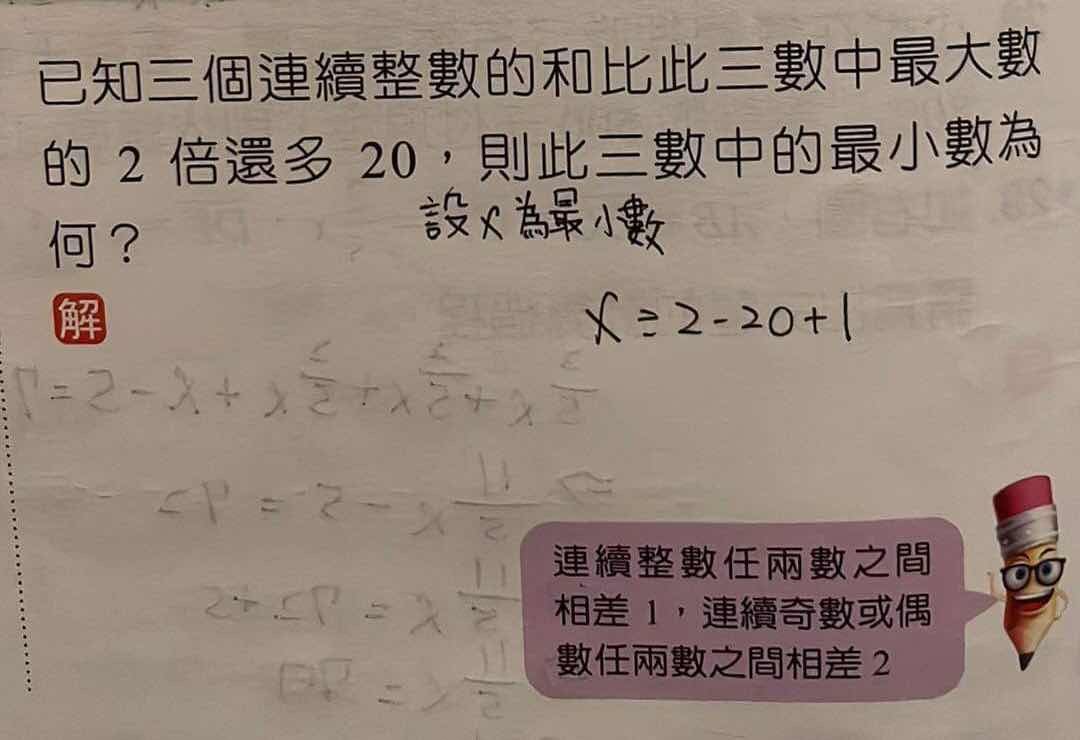 已知三個連續整數的和比此三數中最大數
的 2 倍還多 20，則此三數中的最小數為
何？
設x為最小數
解
x = 2-20+1
連續整數任兩數之間
相差 1，連續奇數或偶
數任兩數之間相差 2